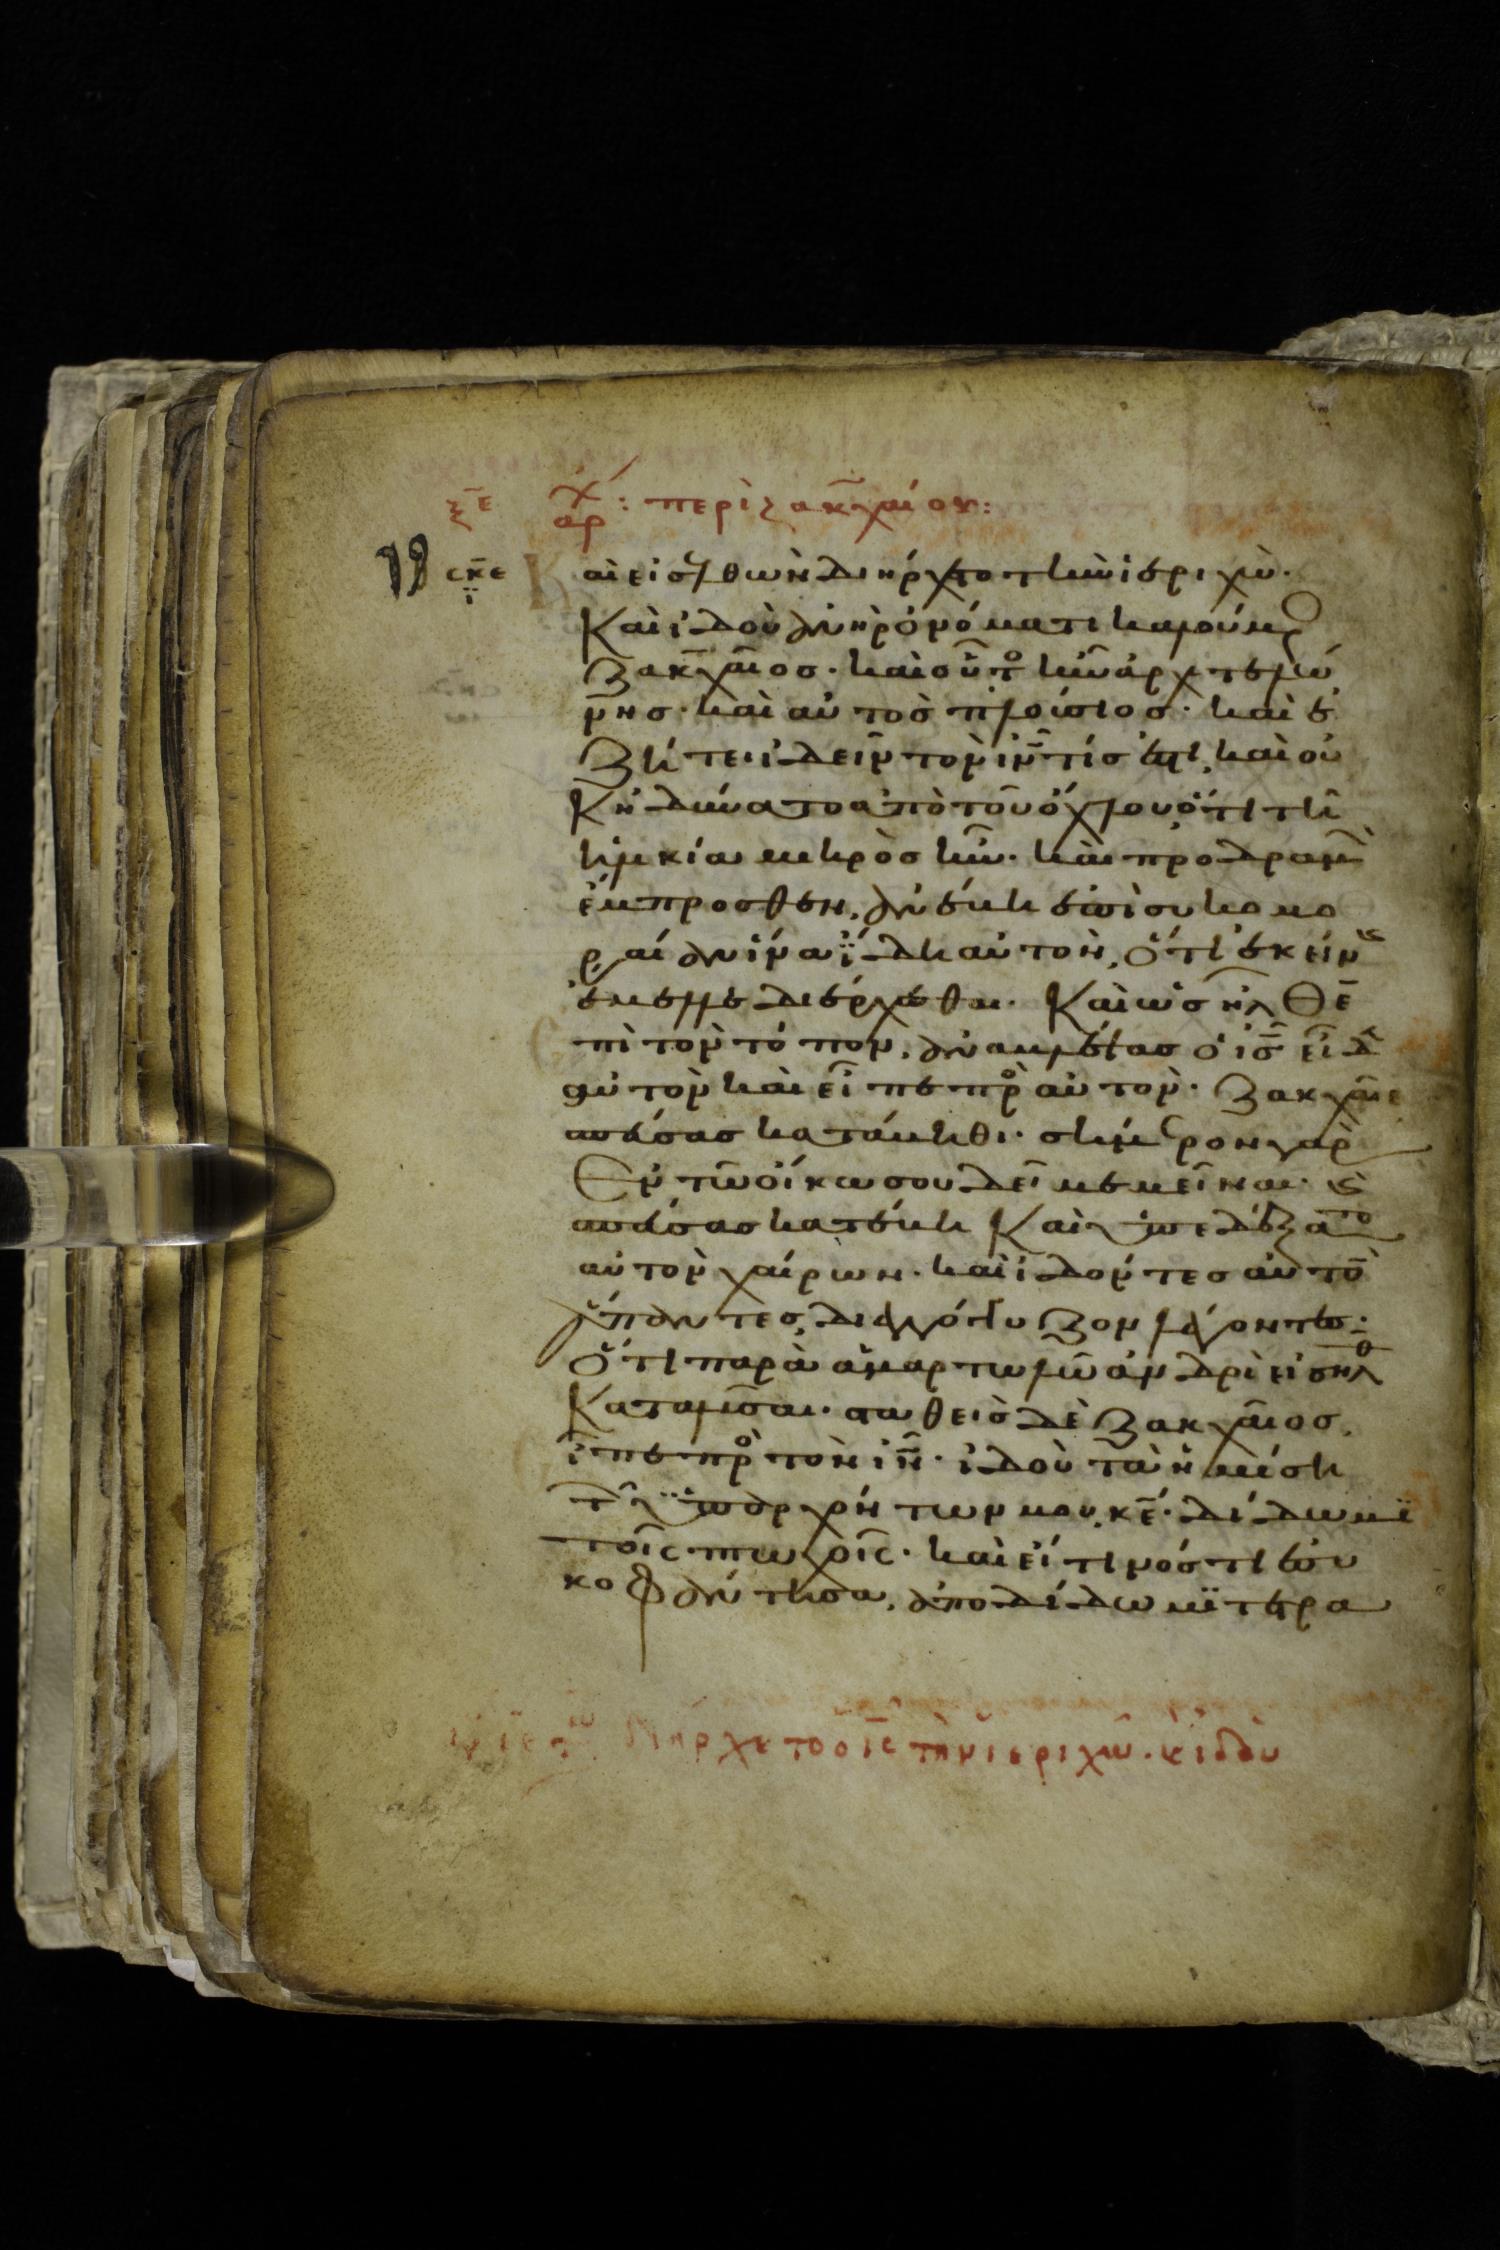 ξε αρχ: περὶ ζακχαίου:
19 σκε ι Καὶ εἰσελθὼν διήρχετο τὴν ἱεριχώ·
Καὶ ἰδοὺ ἀνὴρ ὀνόματι καλούμε
Ζακχαῖος· καὶ οὗτο ἦν ἀρχιτελώ
νης· καὶ αὐτὸς πλούσιος· καὶ ἐ
ζήτει ἰδεῖν τὸν ιν τίς ἐστι, καὶ οὐ
κ ἠδύνατο ἀπὸ τοῦ ὄχλου ὅτι τῆ
ἡλικία μικρὸς ἦν· καὶ προδραμ
ἔμπροσθεν, ἀνέβη ἐπὶ συκομο
ραίαν ἵνα ἴδη αὐτὸν, ὅτι ἐκείν
ἔμελλε διέρχεσθαι· Καὶ ὡς ἦλθε
πὶ τὸν τόπον, ἀναβλέψας ὁ ις εἶδ
αὐτὸν καὶ εἶπε πρ αὐτὸν· Ζακχαῖε
σπεύσας κατάβηθι· σήμερον γὰρ
Ἐν τῶ οἴκω σου δεῖ με μεῖναι· κ
σπεύσας κατέβη Καὶ ὑπεδέξατο
αὐτὸν χαίρων· καὶ ἰδόντες αὐτὸ
ἅπαντες, διεγόγγυζον λέγοντες·
Ὅτι παρὰ ἁμαρτωλῶ ἀνδρὶ εἰσῆλθ
Καταλῦσαι· σταθεὶς δὲ Ζακχαῖος,
εἶπε πρ τὸν ιν· ἰδοὺ τὰ ἡμίση
τ ὑπαρχόντων μου, κε· δίδωμι
τοῖς πτωχοῖς· καὶ εἴ τινός τι ἐσυ
κοφάντησα, ἀποδίδωμι τετρα
διήρχετο ὁ ις τὴν ἱεριχῶ· κ ἰδοὺ